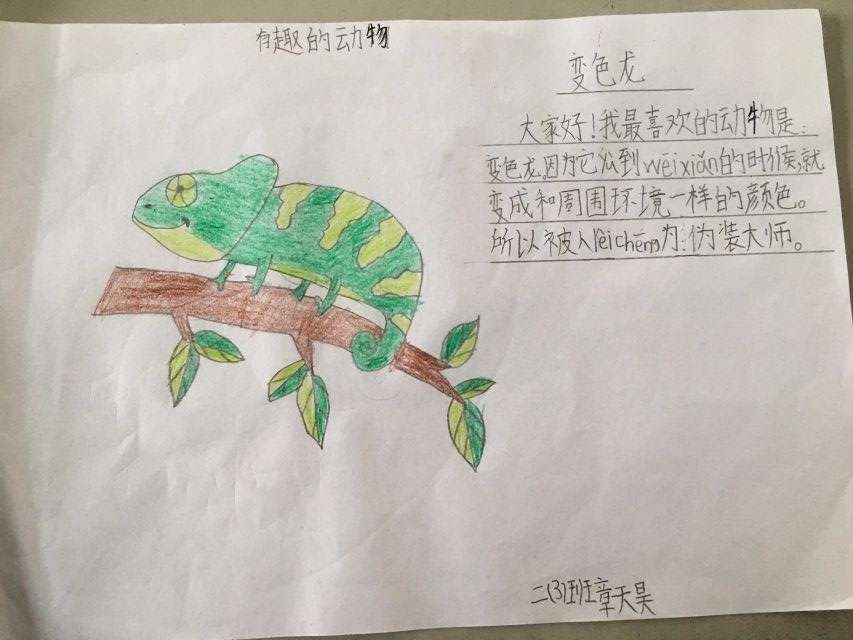 有趣的动物
变色龙
大家好!我最喜欢的动物是:
变色龙。因为它从到wēixiǎn的时候,就
变成和周围环境一样的颜色。
所以被人chēng为:伪装大师。
二(3)班章天昊